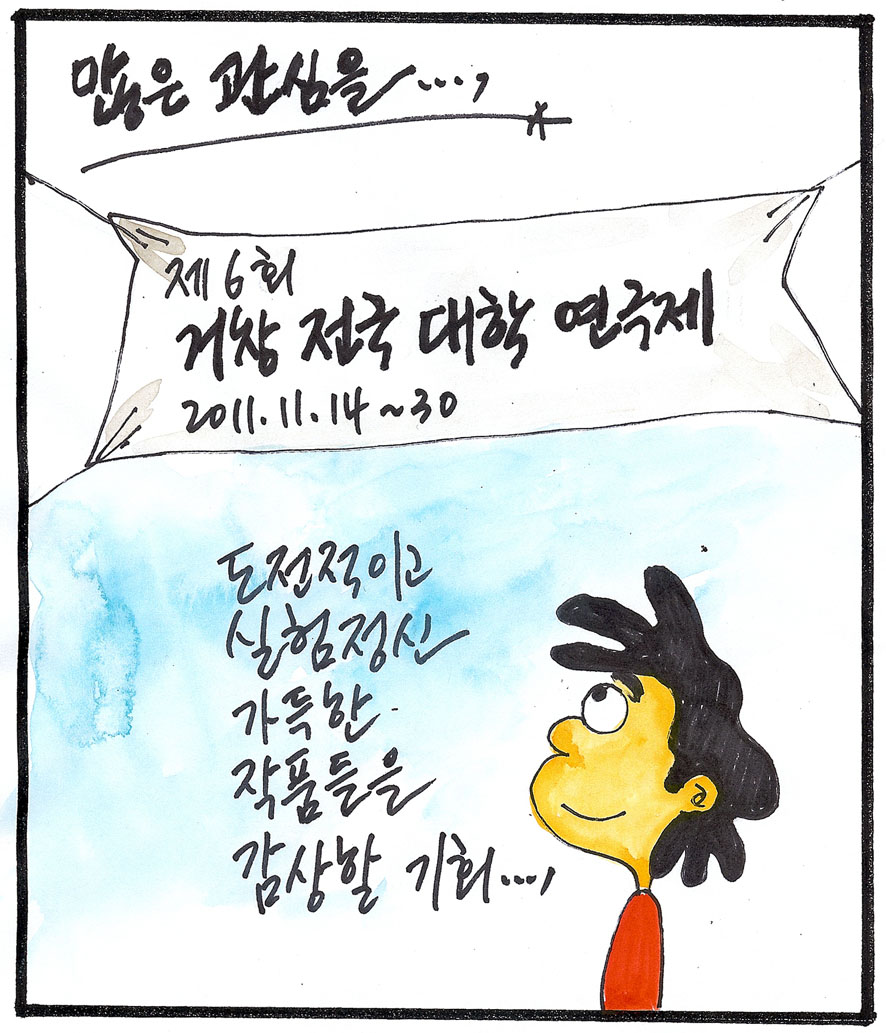 많은 관심을....,
제6회
거창 전국 대학 연극제
2011.11.14~30
도전적이고
실험정신
가득한
작품들을
감상할 기회...,